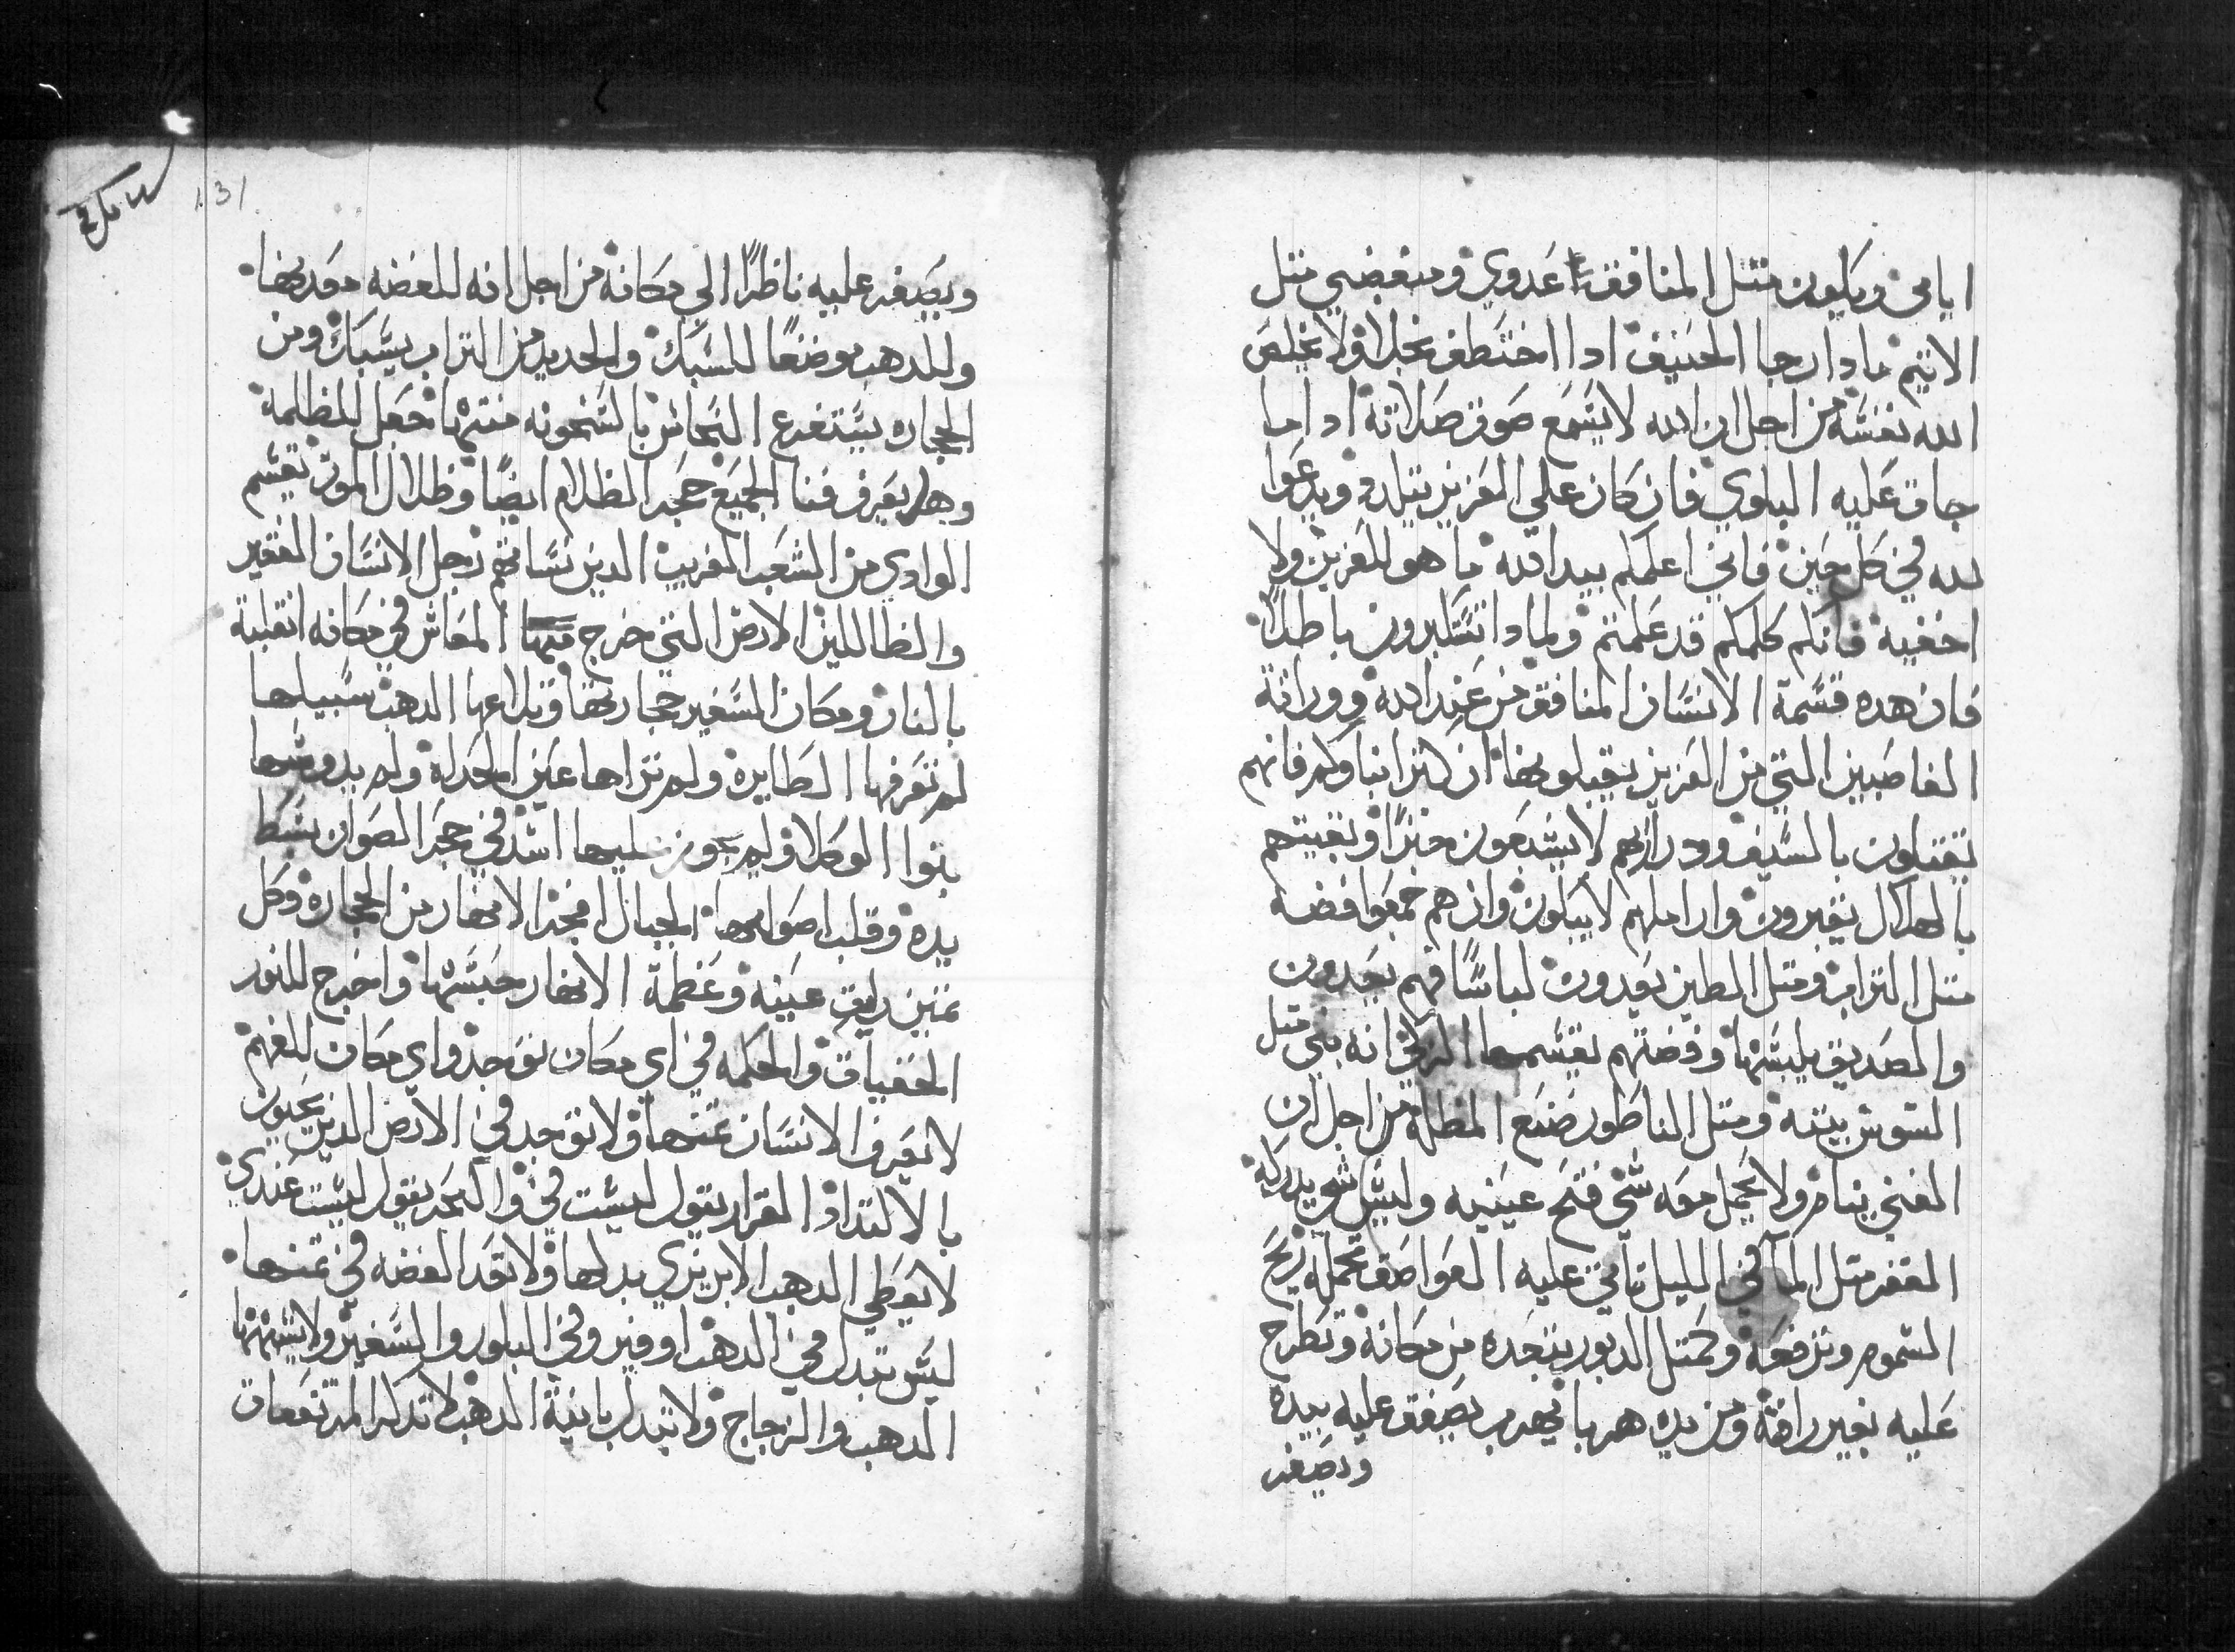 ايامي ويكون متل المنافق اعدوي ومبغضي متل
الاتيم مادا رجا الحنيف ادا اختطف بخلا ولا يخلص
الله نفسه من اجل ان الله لا يسمع صوت صلاته ادا ما
جات عليه البلوي فان كان علي العزيز يتلدد ويدعوا
لله في كل حين فاني اعلمكم بيد الله ما هو للعزيز ولا
اخفيه فانكم كلمكم قد علمتم ولمادا تستكبرون باطلا
فان هده قسمة الانسان المنافق من عند الله ووراتة
الغاصبين التي من العزيز يقبلونها ان كتر انباوهم فانهم
يقتلون بالسيف ودراريهم لا يشبعون خبزا وبقيتهم
بالهلاك يقبرون واراملهم لا يبكون وان هم جمعوا فضه
متل التراب ومتل الطين يعدون لباسا فهم يعدون
والصديق يلبسها وفضتهم يقسمها الزكي انه بني متل
السوس بيته ومتل الناطور صنع المظله من اجل ان
الغني ينام ولا يحمل معه شي فتح عينيه وليس شي يدركه
الفقر متل الما في الليل تاتي عليه العواصف تحمله ريح
السموم وترفعه وكمتل الدبور ينجده من مكانه وتطرح
عليه بغير رافة ومن يده هربا يهرب يصفق عليه بيده
ويصفر
131
ويصفر عليه ناظرا الي مكانه من اجل انه للفضه معدنها
وللدهب موضعا للسبك والحديد من التراب يسبك ومن
الحجاره يستفرغ النحاس بالسخونه منتها جعل للظلمة
وهل يعرف فنا الجميع حجر الظلام ايضا وظلال الموت تقسم
الوادي من الشعب الغريب الدين نساهم رجل الانسان الفقير
والظالمين الارض التي خرج منها المعاش في مكانه انقلبة
بالنار ومكان السفير حجارتها وتراعها الدهب سبيلها
لم تعرفها الطايره ولم تراها عين الحداه ولم يدوسها
بنوا الوكلا ولم يجوز عليها اسد في حجر الصوان بسط
يده وقلب اصولها الجبال افجر الانهار من الحجاره وكل
تمين رات عينه وعظمة الانهار حبسها واخرج للنور
الخفيات والحكمه في اي مكان توجد واي مكان للفهم
لا يعرف الانسان تمنها ولا توجد في الارض الدين يحيون
بالالتداد القرار يقول ليست في والبحر يقول ليست عندي
لا يعطي الدهب الابريزي بدلها ولا توجد الفضه في تمنها
ليس تبدل في الدهب اوفير وفي البلور والسفير ولا يشبهها
الدهب والزجاج ولا تبدل بانية الدهب لا تدكر المرتفعات